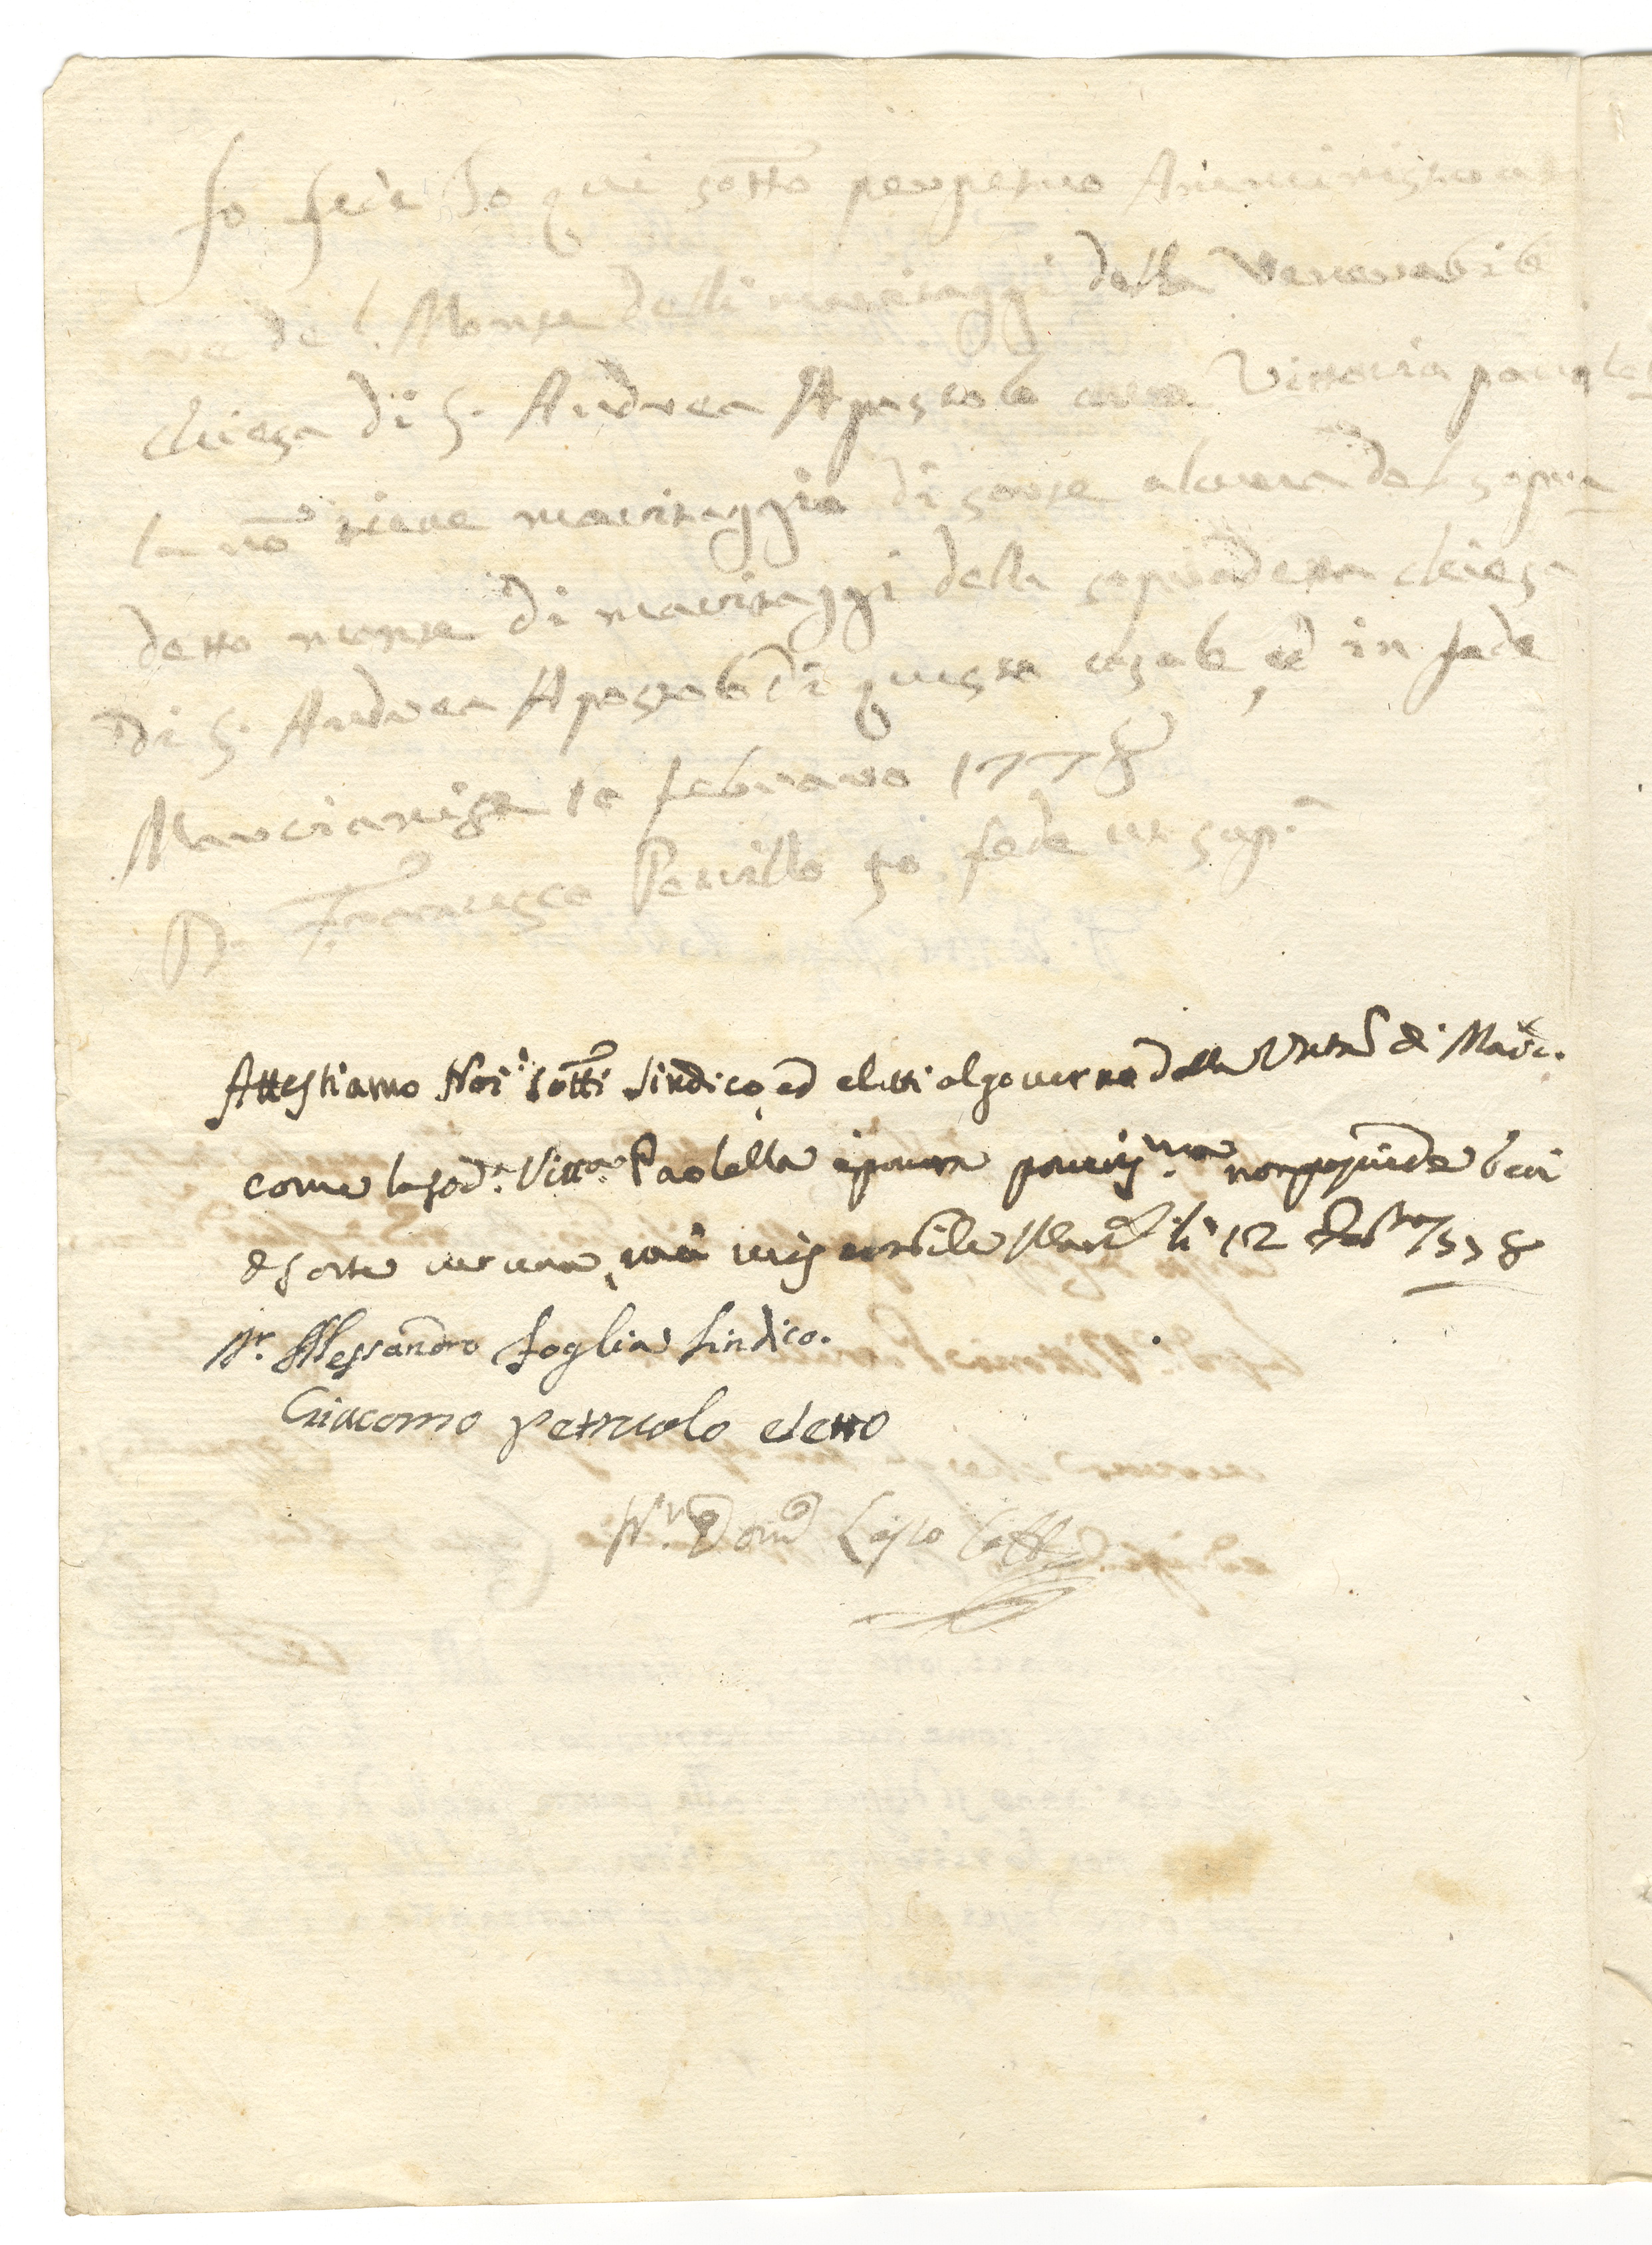 fo fede Io qui sotto perpetuo Amministrato
re del Monte delli maritaggi della Venerabile
chiesa di S. Andrea Apostolo come Vittoria paulel
la nō tiene maritaggio di sorte alcuna del sopra
detto monte di maritaggi della sopradetta chiesa
di S. Andrea Apostolo di questo casale, ed in fede
Marcianise 10 febraro 1778
D. Francesco Petrillo fo fede ut sup.ª
Attestiamo Noi sotti Sindico, ed eletti al governo della Unità di Marc.
come la sod.ª Vitt.ª Paolella è povera poveris.ma non possiede beni
di sorte veruna, ma miserabile Marc. li 12 Feb.ro 1778
Alessandro Foglia Sindico.
Giacomo Petruolo eletto